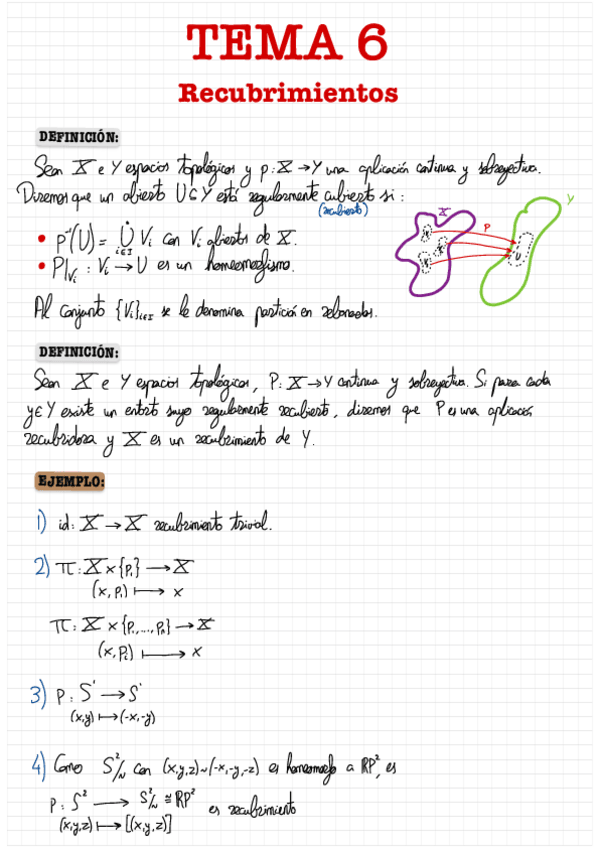 TEMA 6
Recubrimientos
DEFINICIÓN:
Sean X e Y espacios topológicos y p: X → Y una aplicación continua y sobreyectiva.
Diremos que un abierto U ⊆ Y está regularmente cubierto si:
(recubierto)
• p⁻¹(U) = ⋃̇_{i∈I} Vi con Vi abiertos de X.
• P|Vi : Vi → U es un homeomorfismo.
X
P
Y
Vi
Vj
Vk
U
Al conjunto {Vi}i∈I se le denomina partición en rebanadas.
DEFINICIÓN:
Sean X e Y espacios topológicos, P: X → Y continua y sobreyectiva. Si para cada
y∈Y existe un entorno suyo regularmente recubierto, diremos que P es una aplicación
recubridora y X es un recubrimiento de Y.
EJEMPLO:
1) id: X → X recubrimiento trivial.
2) π: X × {p₁} → X
(x, p₁) ↦ x
π: X × {p₁,...,pₙ} → X
(x, pᵢ) ↦ x
3) P: S¹ → S¹
(x,y) ↦ (-x,-y)
4) Como S²/~ con (x,y,z)~(-x,-y,-z) es homeomorfo a RP², es
P: S² → S²/~ ≅ RP² es recubrimiento
(x,y,z) ↦ [(x,y,z)]